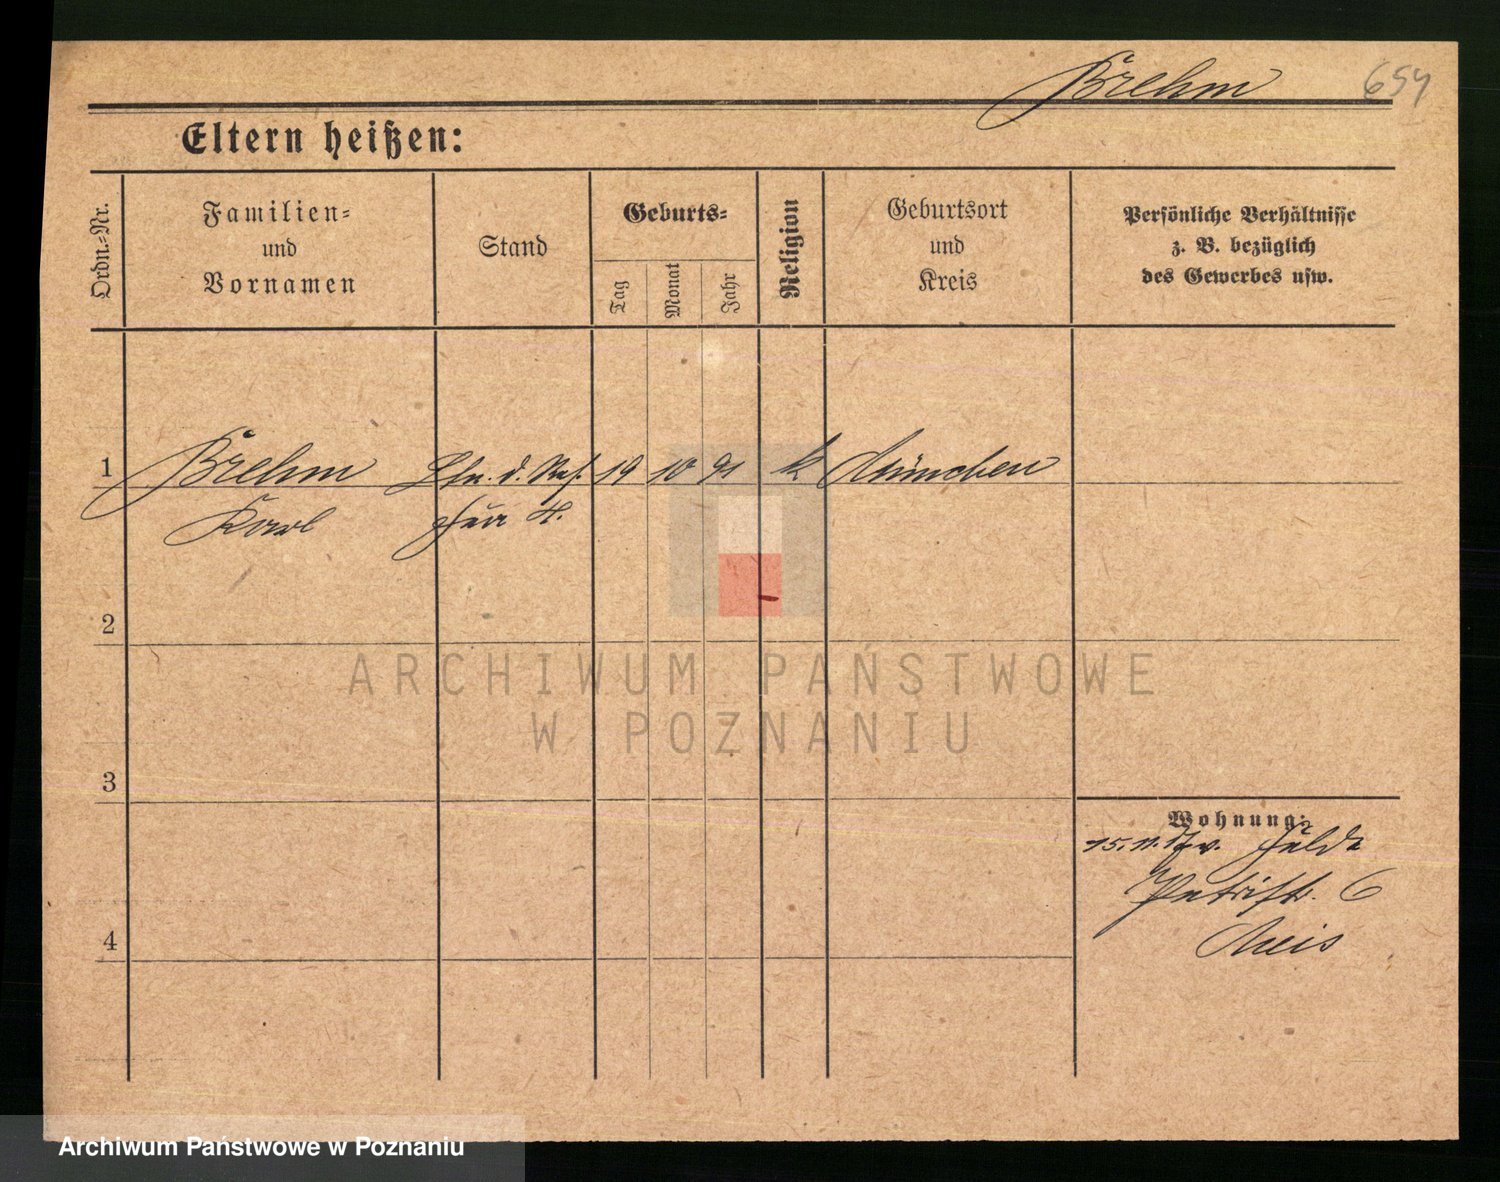 Brehm 654
Eltern heißen:
Ordn.=Nr.
Familien=
und
Vornamen
Stand
Geburts=
Tag
Monat
Jahr
Religion
Geburtsort
und
Kreis
Persönliche Verhältnisse
z. B. bezüglich
des Gewerbes usw.
1 Brehm Ltn. d. Res. 19 10 91 k München
Karl
2
3
4
Wohnung:
15. 11. 17 v. Fulda
Petristr. 6
ARCHIWUM PAŃSTWOWE
W POZNANIU
Archiwum Państwowe w Poznaniu